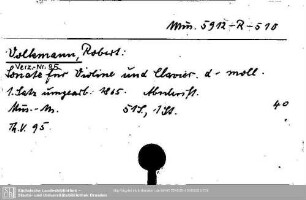 Mus. 5912-R-510
Volkmann, Robert:
Verz.-Nr. 95
Sonate für Violine und Clavier. d-moll.
1. Satz umgearb. 1865. Abschrift.
Mus.-Hs. 51S, 1St.
40
Th. V. 95
Sächsische Landesbibliothek -
Staats- und Universitätsbibliothek Dresden